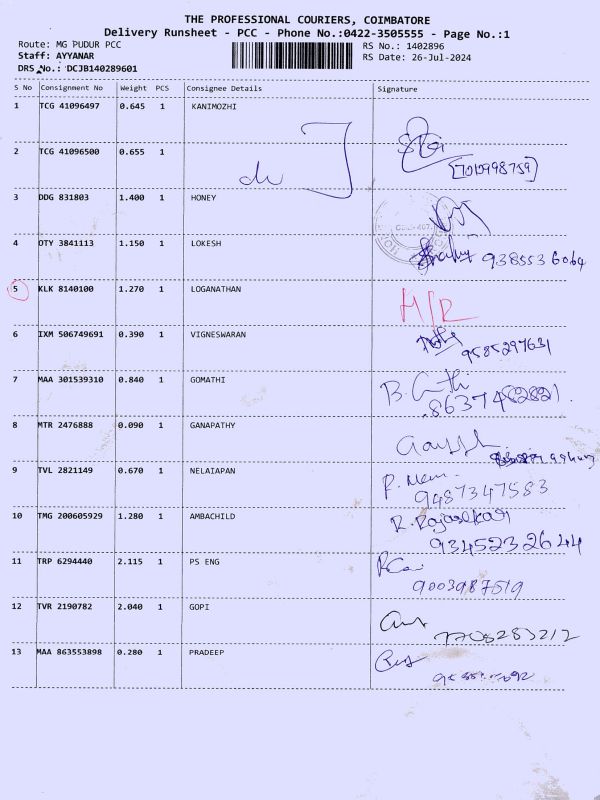 THE PROFESSIONAL COURIERS, COIMBATORE
Delivery Runsheet - PCC - Phone No.:0422-3505555 - Page No.:1
Route: MG PUDUR PCC RS No.: 1402896
Staff: AYYANAR RS Date: 26-Jul-2024
DRS No.: DCJB140289601
S No Consignment No Weight PCS Consignee Details Signature
1 TCG 41096497 0.645 1 KANIMOZHI
2 TCG 41096500 0.655 1
3 DDG 831803 1.400 1 HONEY
4 OTY 3841113 1.150 1 LOKESH
5 KLK 8140100 1.270 1 LOGANATHAN H/R
6 IXM 506749691 0.390 1 VIGNESWARAN
9585297631
7 MAA 301539310 0.840 1 GOMATHI
8637482821
8 MTR 2476888 0.090 1 GANAPATHY
9 TVL 2821149 0.670 1 NELAIAPAN
9487347583
10 TMG 200605929 1.280 1 AMBACHILD R. Rajasekar
9345232644
11 TRP 6294440 2.115 1 PS ENG
9003987519
12 TVR 2190782 2.040 1 GOPI
7708283212
13 MAA 863553898 0.280 1 PRADEEP